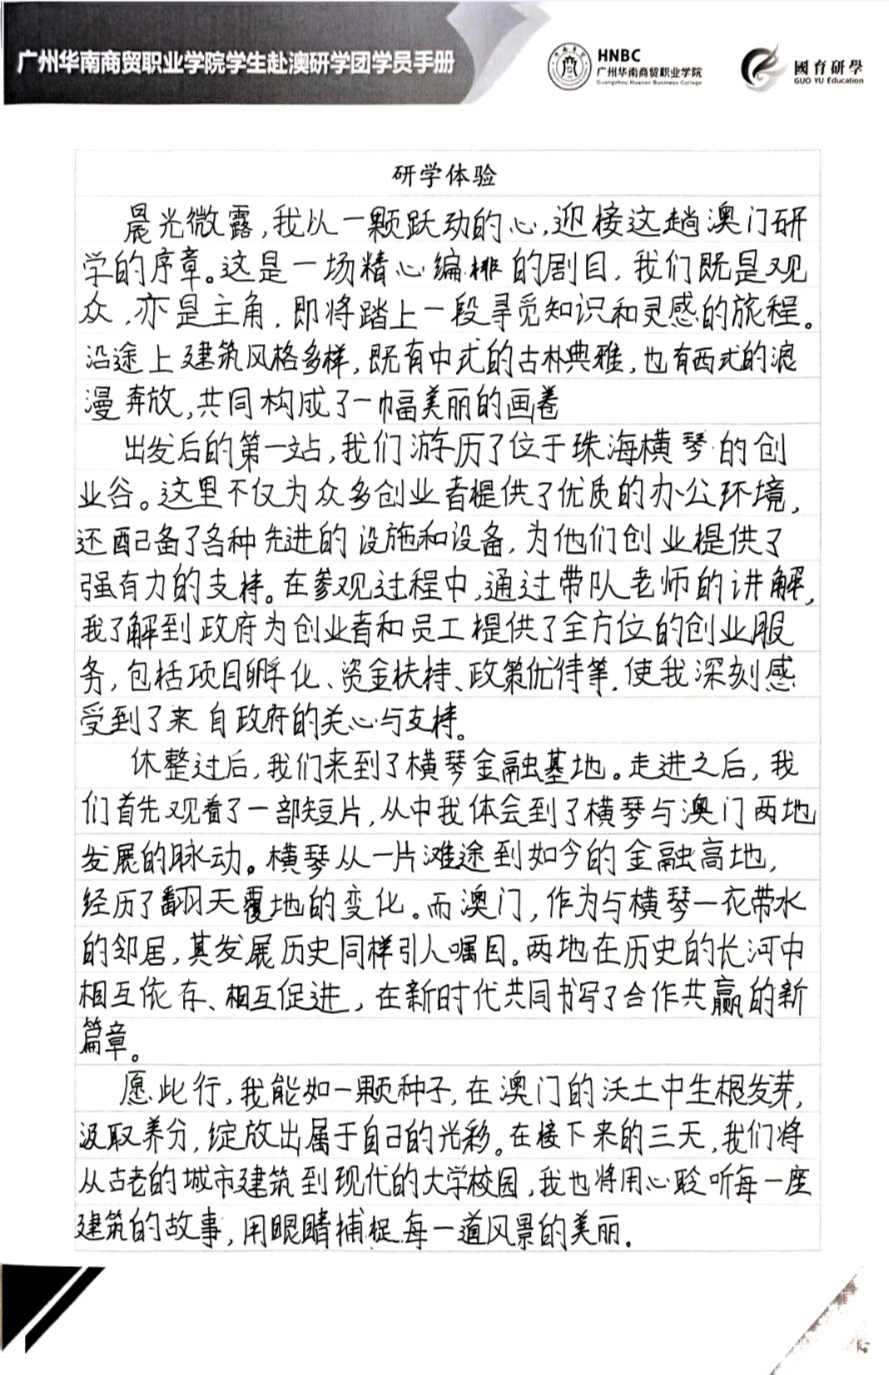 广州华南商贸职业学院学生赴澳研学团学员手册
HNBC
广州华南商贸职业学院
Guangzhou Huanan Business College
國育研學
GUO YU Education
研学体验
晨光微露,我以一颗跃动的心,迎接这趟澳门研
学的序章。这是一场精心编排的剧目,我们既是观
众,亦是主角,即将踏上一段寻觅知识和灵感的旅程。
沿途上建筑风格多样,既有中式的古朴典雅,也有西式的浪
漫奔放,共同构成了一幅美丽的画卷
出发后的第一站,我们游历了位于珠海横琴的创
业谷。这里不仅为众多创业者提供了优质的办公环境,
还配备了各种先进的设施和设备,为他们创业提供了
强有力的支持。在参观过程中,通过带队老师的讲解,
我了解到政府为创业者和员工提供了全方位的创业服
务,包括项目孵化、资金扶持、政策优待等,使我深刻感
受到了来自政府的关心与支持。
休整过后,我们来到了横琴金融基地。走进之后,我
们首先观看了一部短片,从中我体会到了横琴与澳门两地
发展的脉动。横琴从一片滩途到如今的金融高地,
经历了翻天覆地的变化。而澳门,作为与横琴一衣带水
的邻居,其发展历史同样引人嘱目。两地在历史的长河中
相互依存、相互促进,在新时代共同书写了合作共赢的新
篇章。
愿此行,我能如一颗种子,在澳门的沃土中生根发芽,
汲取养分,绽放出属于自己的光彩。在接下来的三天,我们将
从古老的城市建筑到现代的大学校园,我也将用心聆听每一座
建筑的故事,用眼睛捕捉每一道风景的美丽.